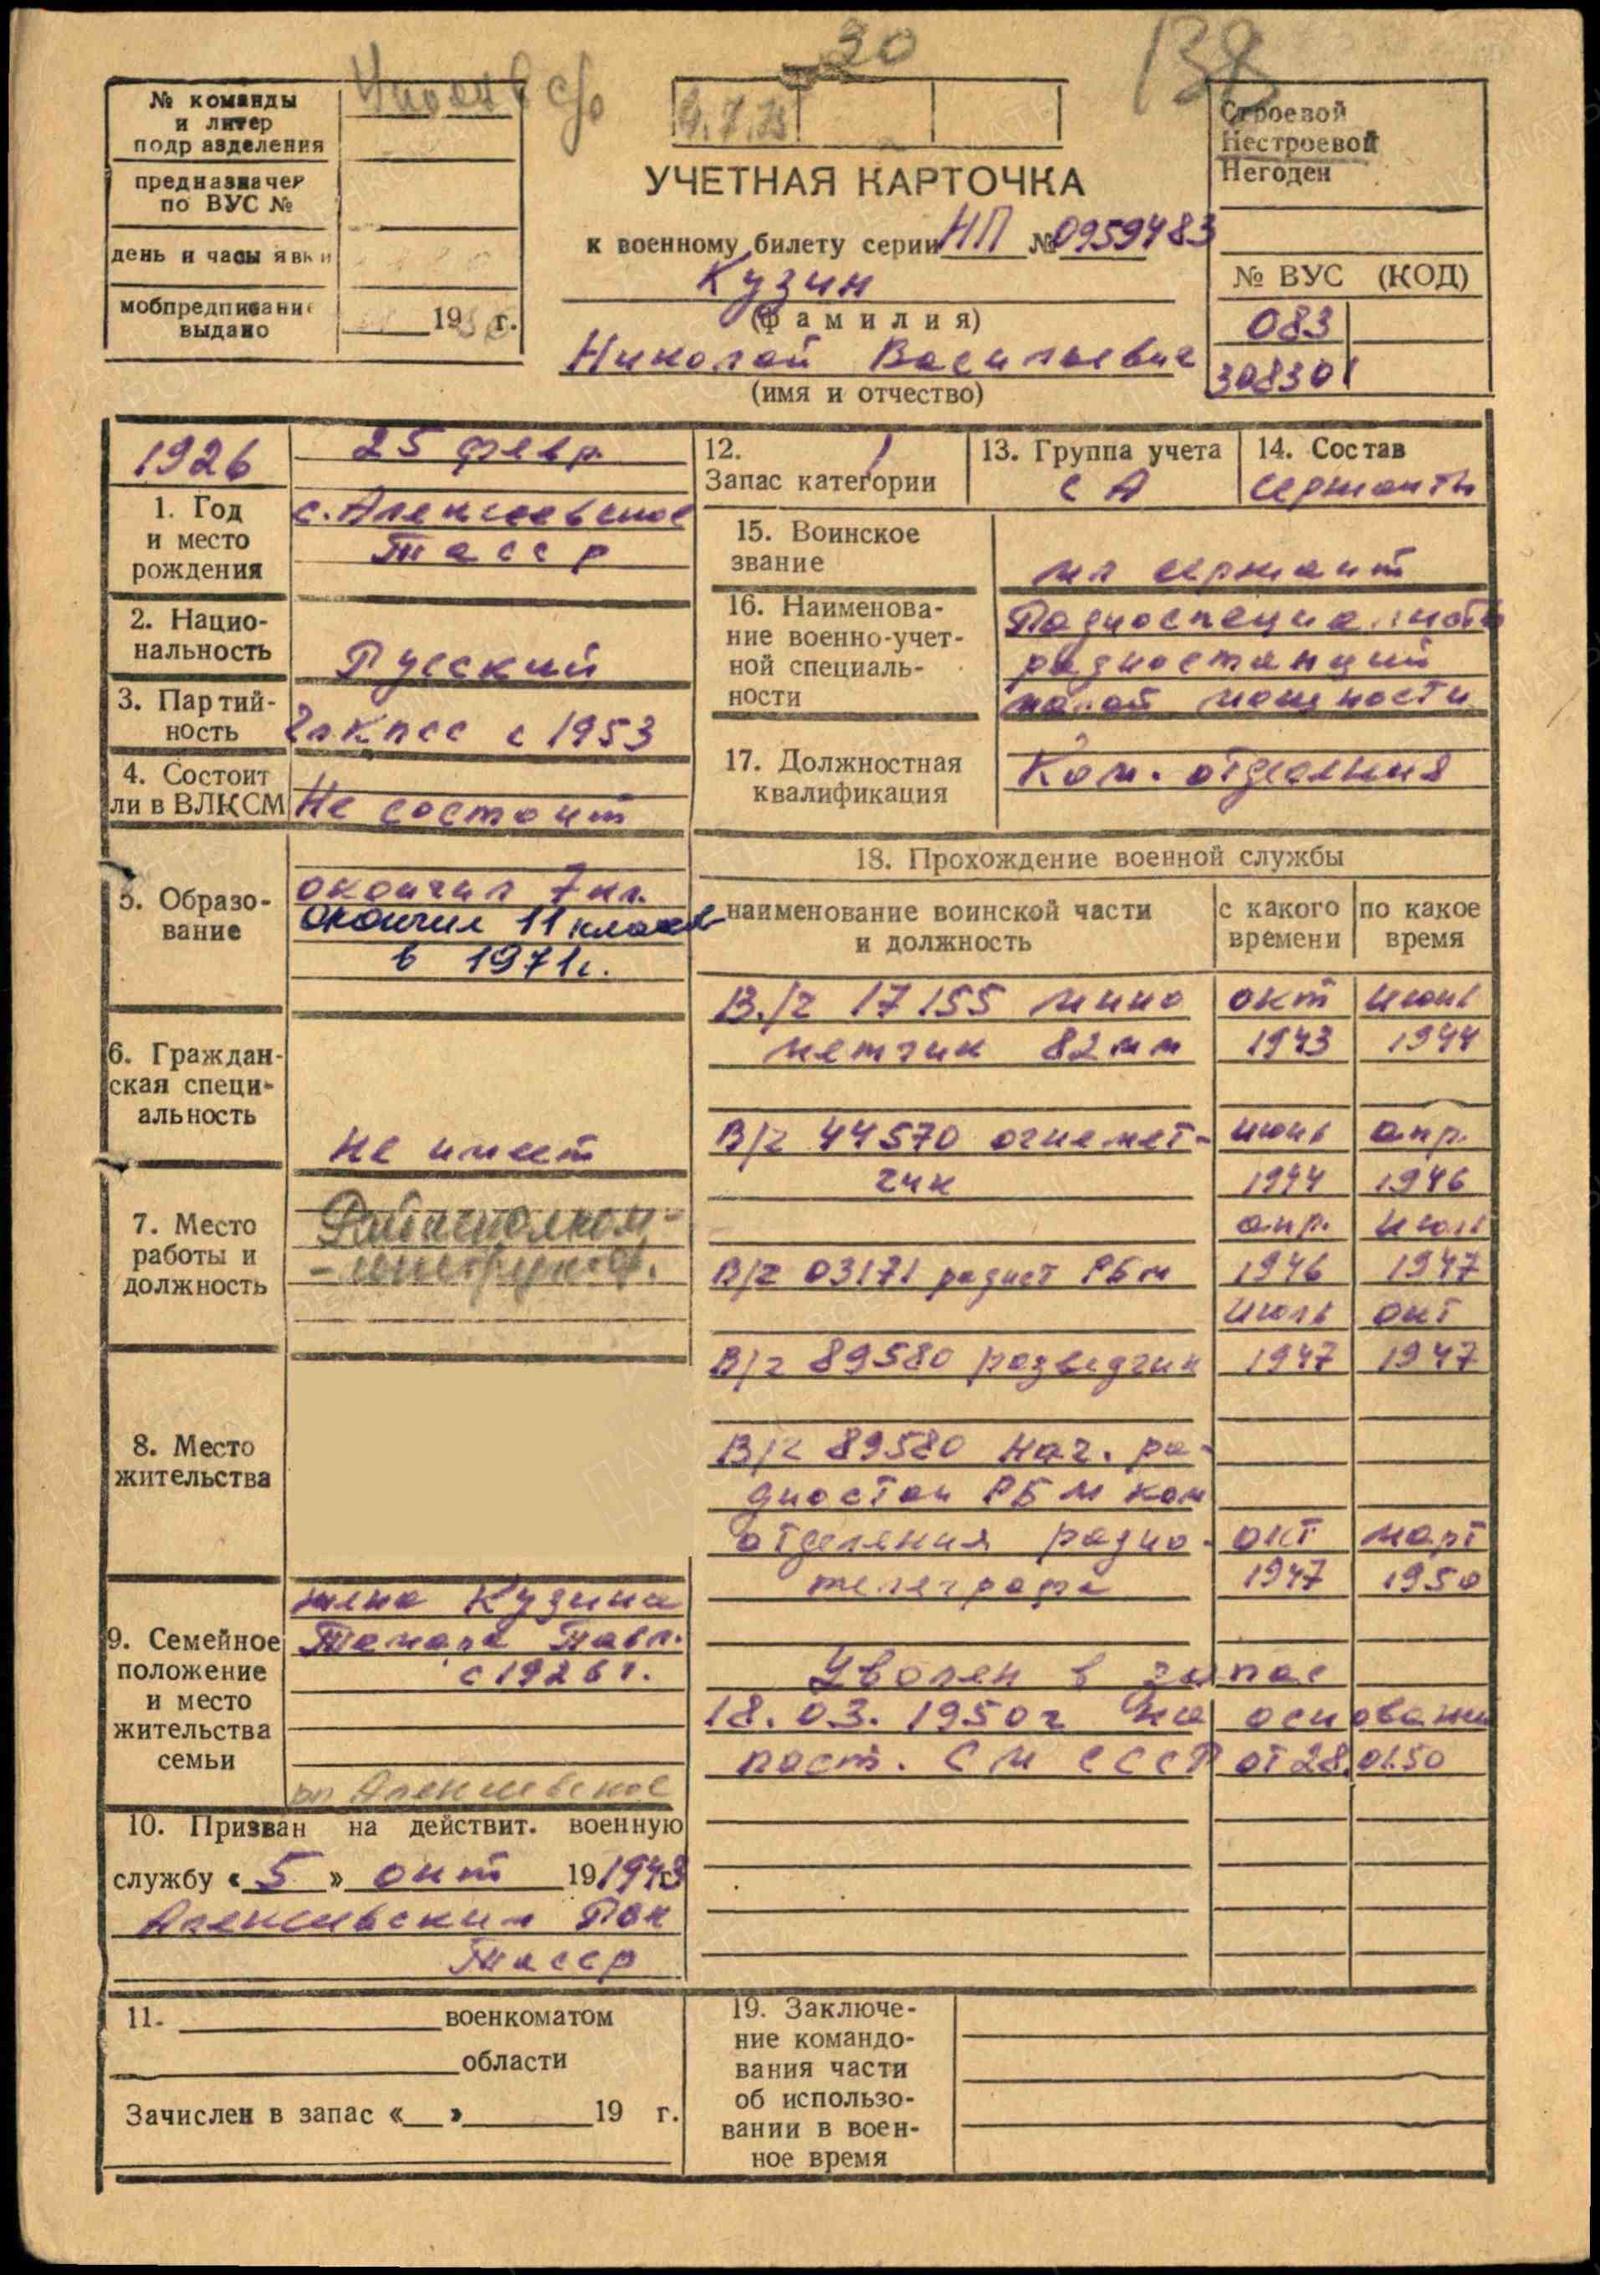 30
138
№ команды
и литер
подразделения
4.7.75
предназначен
по ВУС №
день и часы явки
мобпредписание
выдано
19 г.
УЧЕТНАЯ КАРТОЧКА
к военному билету серии НП № 0959483
Кузин
(фамилия)
Николай Васильевич
(имя и отчество)
Строевой
Нестроевой
Негоден
№ ВУС (КОД)
083
308301
1926
25 февр.
1. Год
и место
рождения
с. Алексеевское
Тасср
2. Нацио-
нальность
Русский
3. Партий-
ность
Чл КПСС с 1953
4. Состоит
ли в ВЛКСМ
Не состоит
5. Образо-
вание
окончил 7 кл.
окончил 11 классов
в 1971г.
6. Граждан-
ская специ-
альность
Не имеет
7. Место
работы и
должность
Райисполком-
-инструктор.
8. Место
жительства
9. Семейное
положение
и место
жительства
семьи
жена Кузина
Тамара Павл.
с 1926 г.
рп Алексеевское
10. Призван на действит. военную
службу «5» окт 19 1943 г.
Алексеевским РВК
Тасср
11. военкоматом
области
Зачислен в запас « » 19 г.
12. 1
Запас категории
13. Группа учета
СА
14. Состав
сержанты
15. Воинское
звание
мл сержант
16. Наименова-
ние военно-учет-
ной специаль-
ности
Радиоспециалисты
радиостанций
малой мощности
17. Должностная
квалификация
Ком. отделения
18. Прохождение военной службы
наименование воинской части
и должность
с какого
времени
по какое
время
В/ч 17155 мино окт июнь
метчик 82мм 1943 1944
В/ч 44570 огнемет- июнь апр.
чик 1944 1946
апр. июль
В/ч 03171 радист РБМ 1946 1947
июль окт
В/ч 89580 разведчик 1947 1947
В/ч 89580 нач. ра-
диостан РБМ ком
отделения радио- окт март
телеграфа 1947 1950
Уволен в запас
18.03.1950г на основании
пост. СМ СССР от 28.01.50
19. Заключе-
ние командо-
вания части
об использо-
вании в воен-
ное время